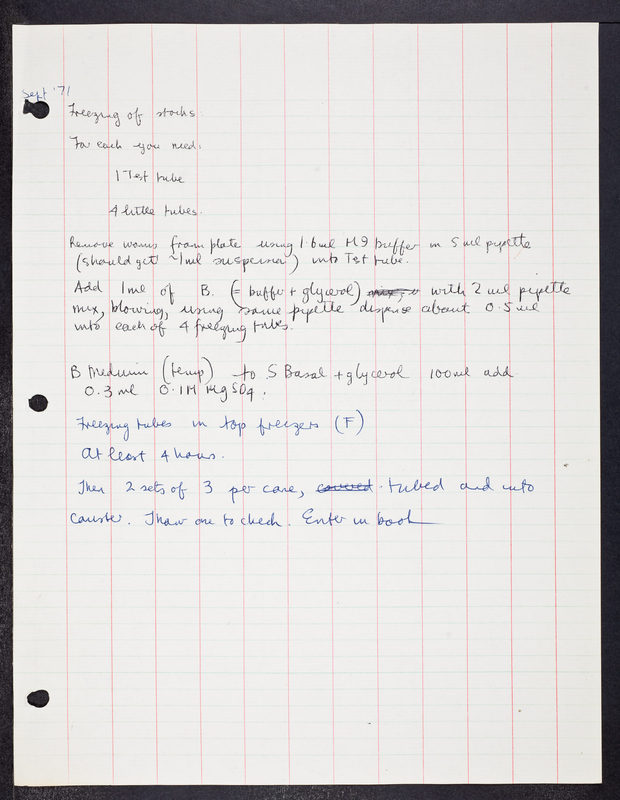 Sept '71
Freezing of stocks.
For each you need:
1 Test tube
4 little tubes.
Remove worms from plate using 1.6ml M9 buffer in 5 ml pipette
(should get ~1ml suspension) into Test tube.
Add 1ml of B. (= buffer + glycerol) with 2 ml pipette
mix, blowing, using same pipette dispense about 0.5 ml
into each of 4 freezing tubes.
B Medium (temp) to S Basal + glycerol 100ml add
0.3 ml 0.1M MgSO4.
Freezing tubes in top freezers (F)
At least 4 hours.
Then 2 sets of 3 per cane, covered tubed and into
canister. Thaw one to check. Enter in book